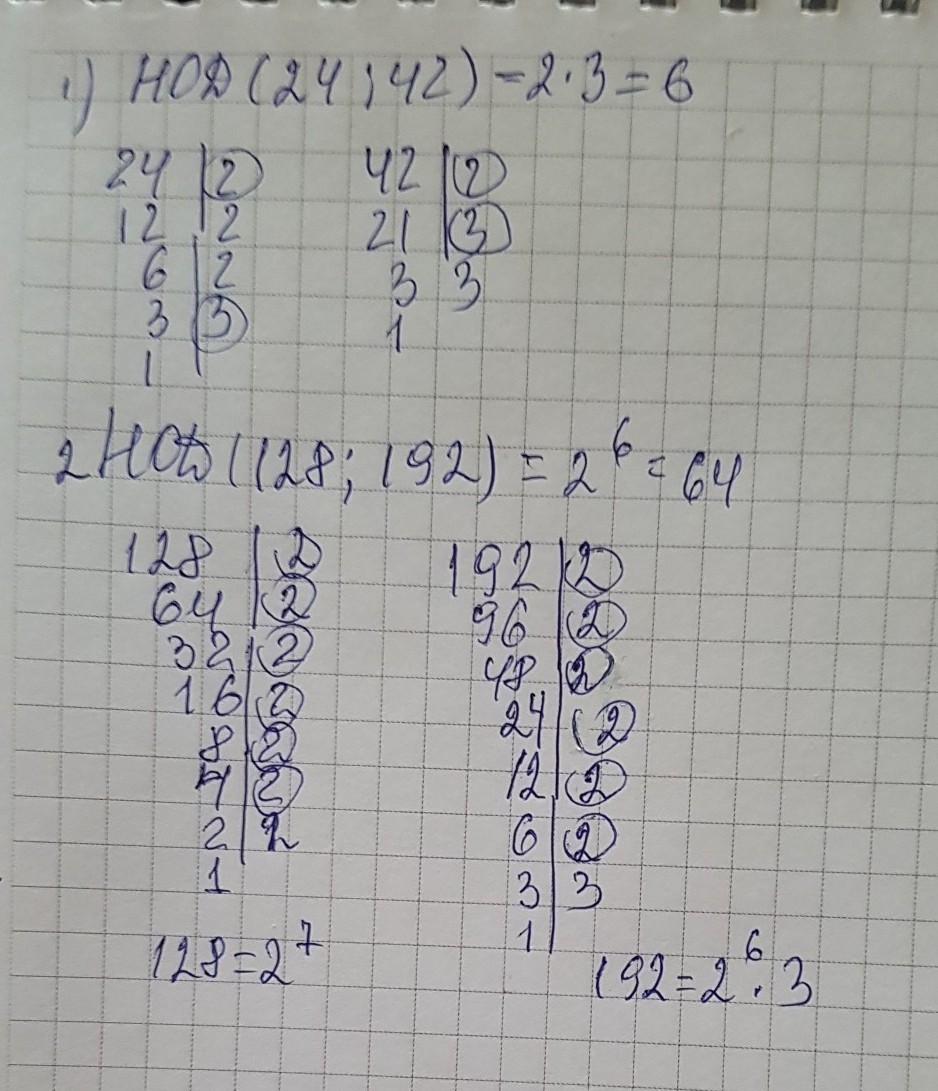 1) НОД (24; 42) = 2·3 = 6
24 | 2 42 | 2
12 | 2 21 | 3
6 | 2 3 3
3 | 3 1
1
2 НОД (128; 192) = 2⁶ = 64
128 | 2 192 | 2
64 | 2 96 | 2
32 | 2 48 | 2
16 | 2 24 | 2
8 | 2 12 | 2
4 | 2 6 | 2
2 | 2 3 | 3
1 1
128 = 2⁷ 192 = 2⁶ · 3